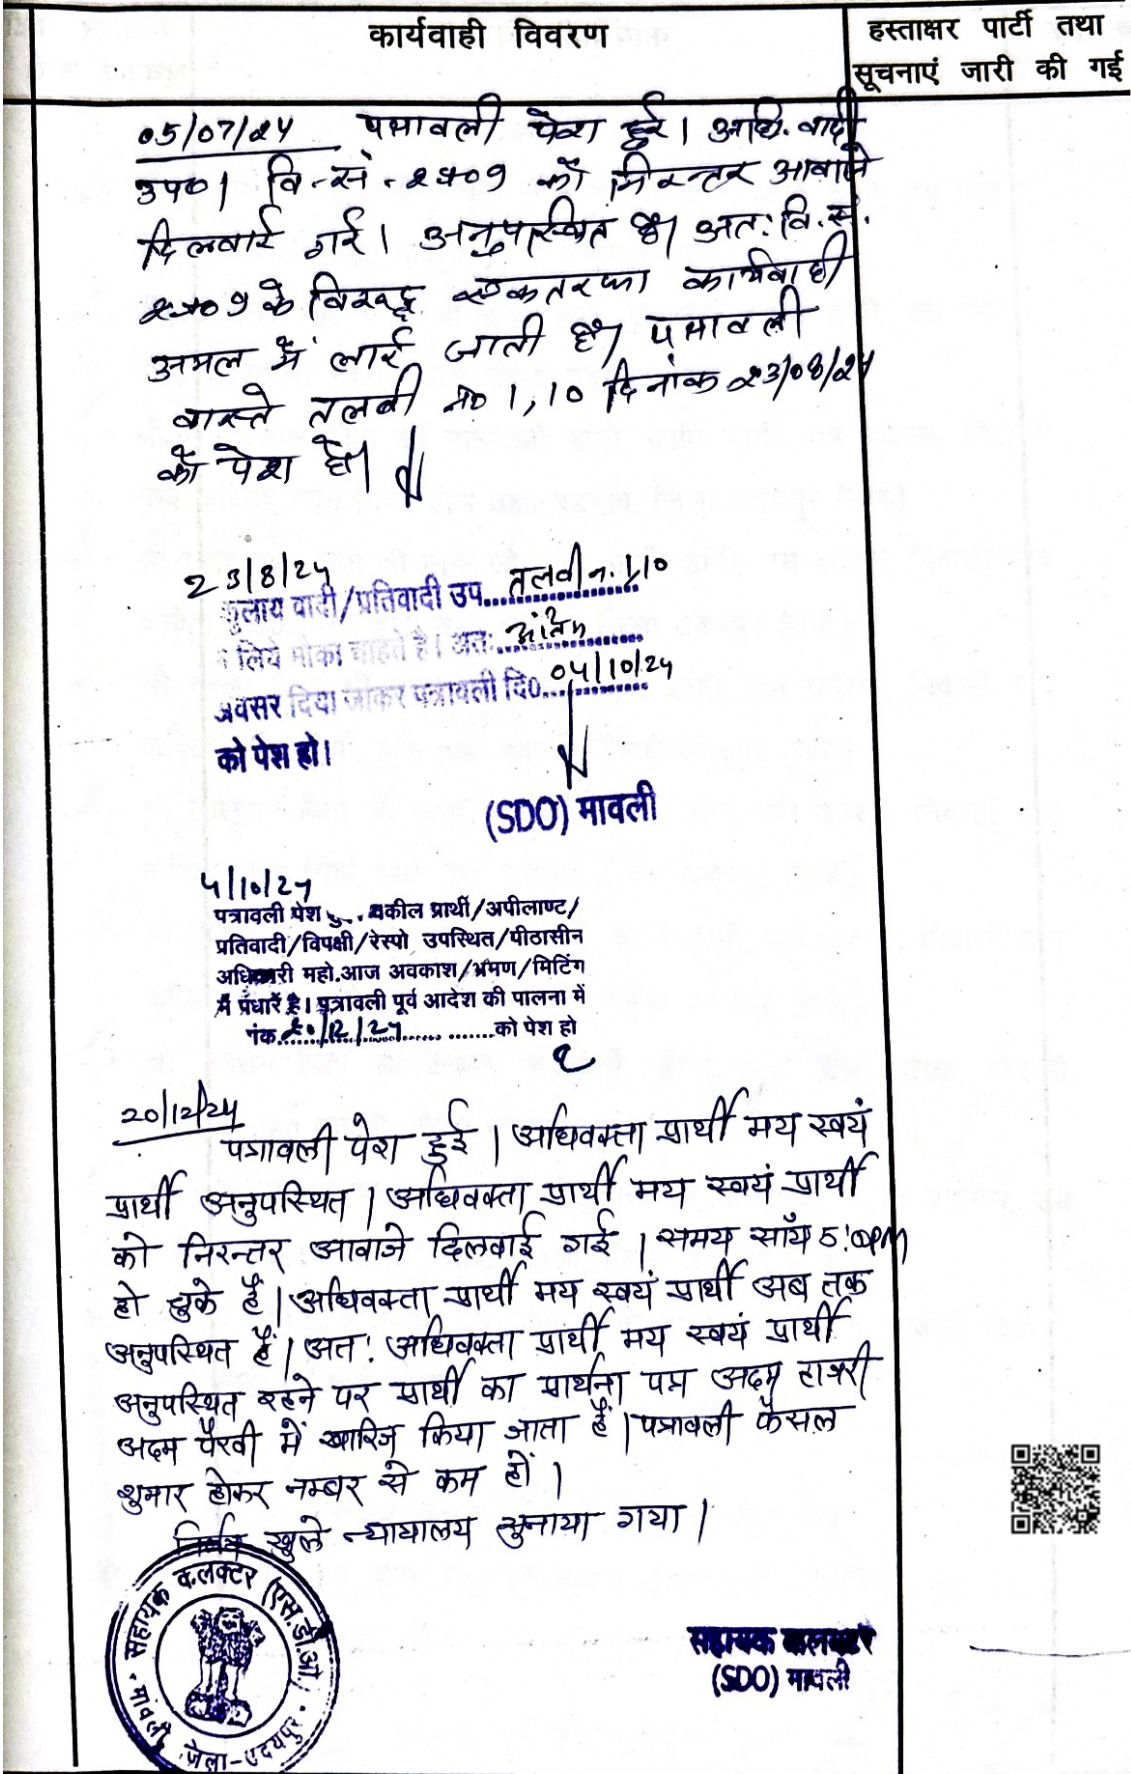 कार्यवाही विवरण
हस्ताक्षर पार्टी तथा
सूचनाएं जारी की गई
05/07/24 पत्रावली पेश हुई। अधि. वादी
उप0। वि.सं. 2 से 9 को निरन्तर आवाजे
दिलवाई गई। अनुपस्थित है। अतः वि.सं.
2 से 9 के विरुद्ध एकतरफा कार्यवाही
अमल में लाई जाती है। पत्रावली
वास्ते तलबी न0 1,10 दिनांक 23/08/24
को पेश हो।
23/8/24
वादी/प्रतिवादी उप... तलबी न. 1,10
लिये मोका चाहते है। अतः अंतिम
अवसर दिया जाकर पत्रावली दि0. 04/10/24
को पेश हो।
(SDO) मावली
4/10/24
पत्रावली पेश हु... वकील प्रार्थी/अपीलाण्ट/
प्रतिवादी/विपक्षी/रेस्पो उपस्थित/पीठासीन
अधिकारी महो.आज अवकाश/भ्रमण/मिटिंग
में पधारें है। पत्रावली पूर्व आदेश की पालना में
नांक 20/12/24 को पेश हो
20/12/24
पत्रावली पेश हुई। अधिवक्ता प्रार्थी मय स्वयं
प्रार्थी अनुपस्थित। अधिवक्ता प्रार्थी मय स्वयं प्रार्थी
को निरन्तर आवाजे दिलवाई गई। समय साँय 5:00PM
हो चुके हैं। अधिवक्ता प्रार्थी मय स्वयं प्रार्थी अब तक
अनुपस्थित हैं। अत: अधिवक्ता प्रार्थी मय स्वयं प्रार्थी
अनुपस्थित रहने पर प्रार्थी का प्रार्थना पत्र अदम हाजरी
अदम पैरवी में खारिज किया जाता हैं। पत्रावली फैसल
शुमार होकर नम्बर से कम हों।
निर्णय खुले न्यायालय सुनाया गया।
सहायक कलक्टर (एस.डी.ओ)
मावली, जिला-उदयपुर
सहायक कलक्टर
(SDO) मावली